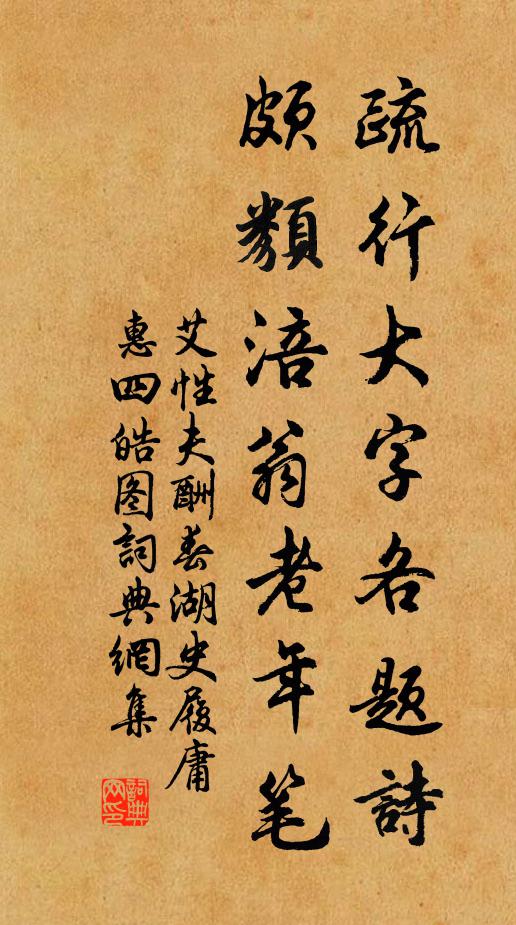 疏行大字各題詩
頗類涪翁老年笔
艾性夫酬春湖史履庸
惠四皓图詞典網集
詞典网印